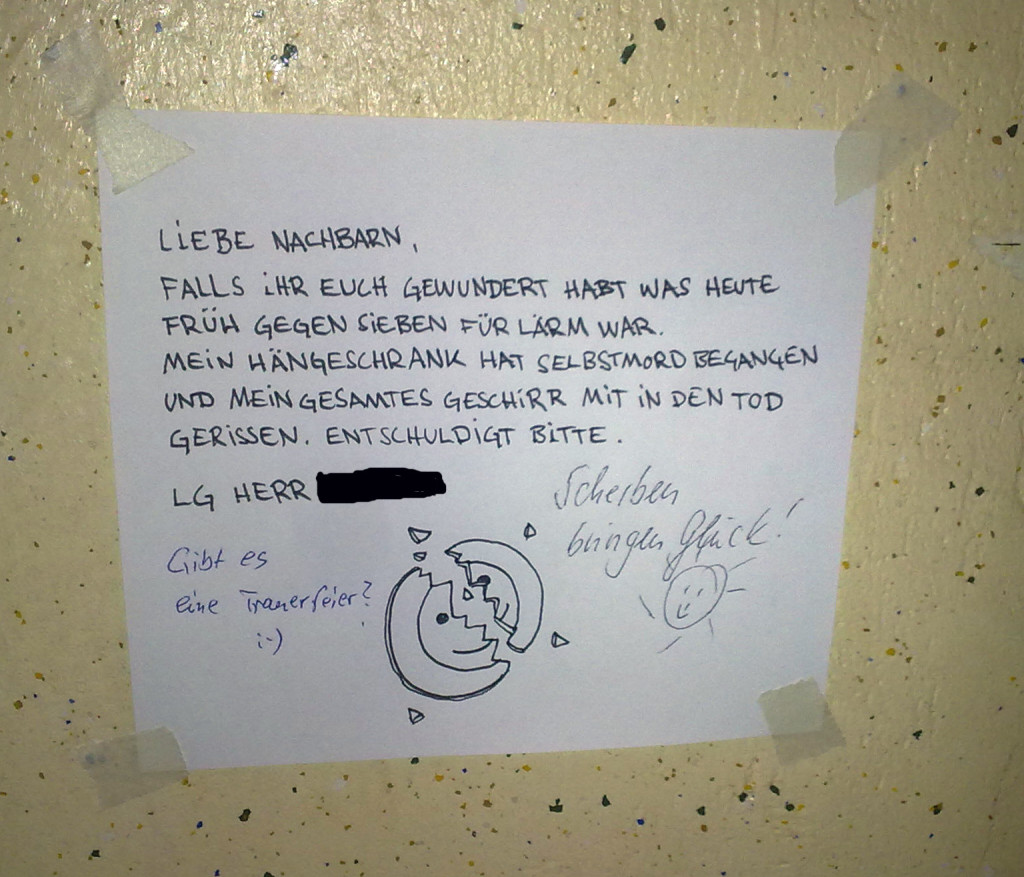 LIEBE NACHBARN,
FALLS IHR EUCH GEWUNDERT HABT WAS HEUTE
FRÜH GEGEN SIEBEN FÜR LÄRM WAR.
MEIN HÄNGESCHRANK HAT SELBSTMORD BEGANGEN
UND MEIN GESAMTES GESCHIRR MIT IN DEN TOD
GERISSEN. ENTSCHULDIGT BITTE.
LG HERR
Scherben
bringen Glück!
Gibt es
eine Trauerfeier?
;-)